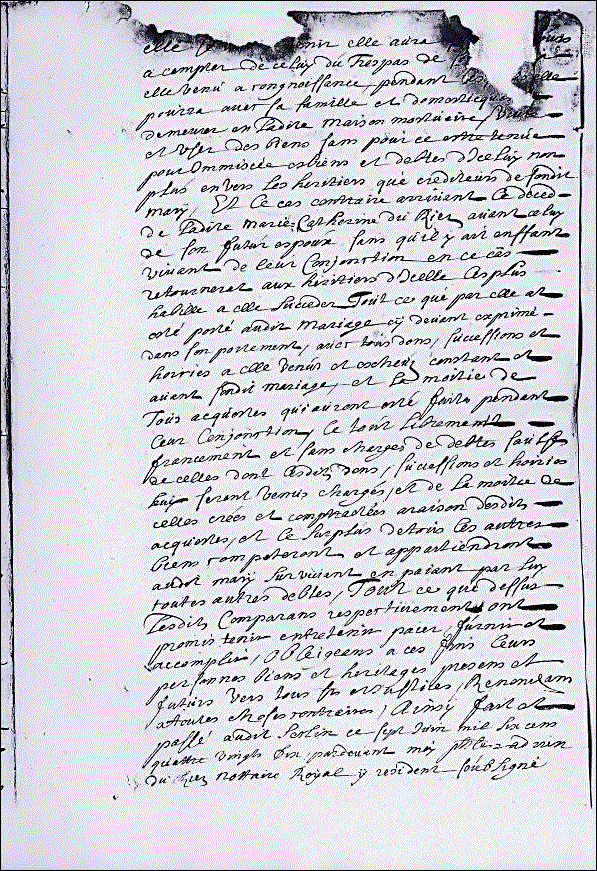 elle elle aura jours
a compter de celuy du Trespas de
elle venu a congnoissance, pendant elle
pourra avecq sa famille et domesticques
demeurer en ladite maison mortuaire, vivre
et user des biens sans pour ce estre tenue
pour Immiscée es biens et debtes d'Iceluy non
plus envers les heritiers que crediteurs de sondit
mary, Et le cas contraire arrivant le deced
de ladite Marie Catherine du Riez avant celuy
de son futur espoux sans qu'il y ait enffant
vivant de leur Conjonction en ce cas
retourneront aux heritiers d'Icelle les plus
habille a elle succeder Tout ce que par elle at
esté porté audit mariage cy devant exprimé
dans son portement, avecq tous dons, successions et
hoiries a elle venus et escheuz constant et
avant sondit mariage, et la moitié de
Tous acquestes qui auront esté faits pendant
leur Conjonction, Le tout librement
francement et sans charges de debtes sauff
de celles dont lesdits dons, successions et hoiries
luy seront venus chargés, et de la moitié de
celles créés et comptractées a raison desdits
acquestes, et le surplus de tous les autres
biens competeront et appartiendront
audit mary survivant en paiant par luy
toutes autres debtes, Tout ce que dessus
Lesdits Comparans respectivement ont
promis tenir entretenir paier, furnir et
accomplir, Obligeans a ces fins leurs
personnes biens et heritages presens et
futurs vers tous Renonçans
a toutes choses contraires, Ainsy fait et
passé audit Seclin ce sept Juin mil six cens
quattre vingts dix, pardevant moy Adrien
du Riez nottaire Royal y resident soubsigné